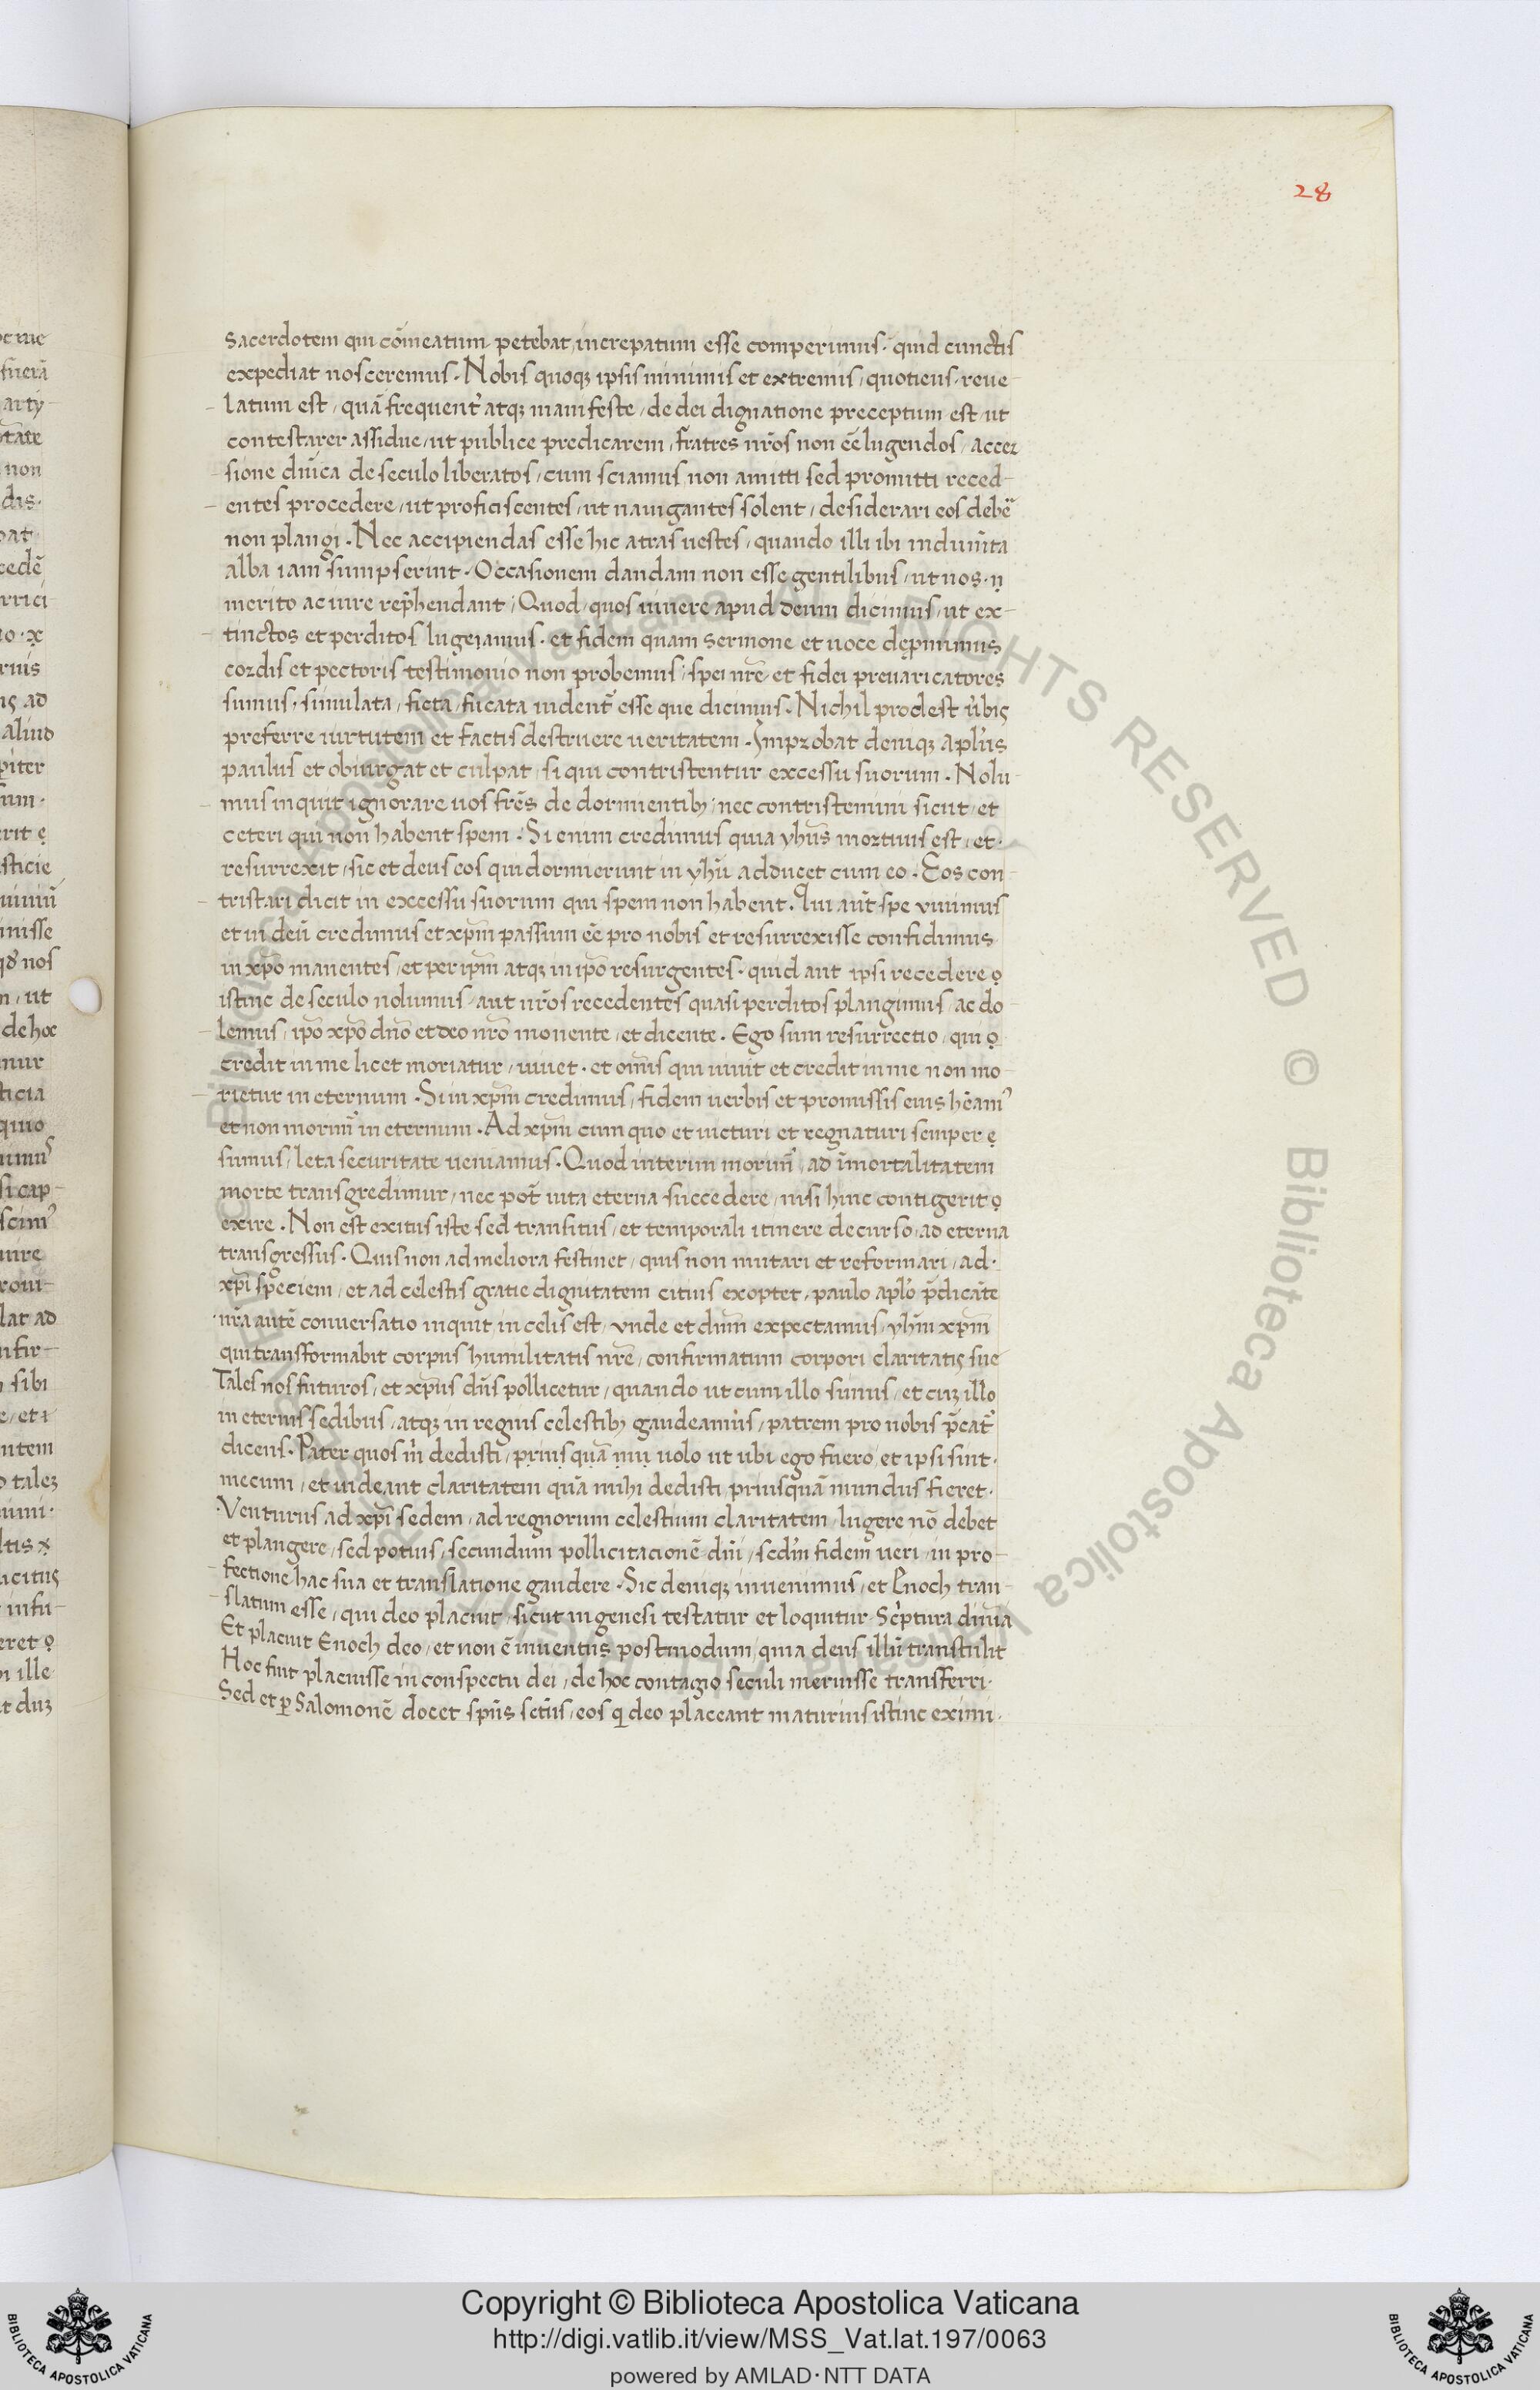 28
sacerdotem qui cōmeatum petebat increpatum esse comperimus · quid cunctis
expediat nosceremus · Nobis quoqꝫ ipsis minimis et extremis / quotiens · reue-
latum est / quā frequent᷑ atqꝫ manifeste / de dei dignatione preceptum est / ut
contestarer assidue / ut publice predicarem / fratres nr̄os non eē lugendos / accer
sione dn̄ica de seculo liberatos / cum sciamus non amitti sed promitti reced-
entes procedere / ut proficiscentes / ut nauigantes solent / desiderari eos debē
non plangi · Nec accipiendas esse hic atras uestes / quando illi ibi indum̄ta
alba iam sumpserint · Occasionem dandam non esse gentilibus / ut nos · ṇ
merito ac iure rep̄hendant / Quod / quos uiuere apud deum dicimus / ut ex-
tinctos et perditos lugeamus · et fidem quam sermone et uoce dep̄mimus
cordis et pectoris testimonio non probemus / spei nr̄e et fidei preuaricatores
sumus · simulata / ficta / fucata uident᷑ esse que dicimus · Nichil prodest u᷑bis
preferre uirtutem et factis destruere ueritatem · Improbat deniqꝫ apl̄us
paulus et obiurgat et culpat / si qui contristentur excessu suorum · Nolu-
mus inquit ignorare uos fr̄es de dormientibꝫ / nec contristemini sicut / et
ceteri qui non habent spem · Si enim credimus quia yhūs mortuus est / et ·
resurrexit / sic et deus eos qui dormierunt in yhū adducet cum eo · Eos con-
tristari dicit in excessu suorum qui spem non habent · Qui aūt spe uiuimus
et in deū credimus et xp̄m passum eē pro nobis et resurrexisse confidimus
in xp̄o manentes / et per ip̄m atqꝫ in ip̄o resurgentes · quid aut ipsi recedere ọ
istinc de seculo nolumus / aut nr̄os recedentes quasi perditos plangimus / ac do-
lemus / ip̄o xp̄o dn̄o et deo nr̄o monente / et dicente · Ego sum resurrectio / qui ọ
credit in me licet moriatur / uiuet · et om̄is qui uiuit et credit in me non mo-
rietur in eternum · Si in xp̄m credimus / fidem uerbis et promissis eius hēamꝰ
et non morim᷑ in eternum · Ad xp̄m cum quo et uicturi et regnaturi semper ẹ
sumus / leta securitate ueniamus · Quod interim morim᷑ / ad īmortalitatem
morte transgredimur / nec pōt uita eterna succedere / nisi hinc contigerit ọ
exire · Non est exitus iste sed transitus / et temporali itinere decurso / ad eterna
transgressus · Quis non ad meliora festinet / quis non mutari et reformari / ad ·
xp̄i speciem / et ad celestis gratie dignitatem citius exoptet / paulo apl̄o p̄dicāte
nr̄a autē conuersatio inquit in celis est / unde et dn̄m expectamus / yhm̄ xp̄m
qui transformabit corpus humilitatis nr̄e / confirmatum corpori claritatis sue
Tales nos futuros / et xp̄us dn̄s pollicetur / quando ut cum illo simus / et cuꝫ illo
in eternis sedibus / atqꝫ in regnis celestibꝫ gaudeamus / patrem pro nobis p̄cat᷑
dicens · Pater quos m̄ dedisti / priusquā mu uolo ut ubi ego fuero / et ipsi sint ·
mecum / et uideant claritatem quā mihi dedisti / priusquā mundus fieret ·
Venturus ad xp̄i sedem / ad regnorum celestium claritatem / lugere nō debet
et plangere / sed potius / secundum pollicitacionē dn̄i / sed᷑m fidem ueri / in pro-
fectione hac sua et translatione gaudere · Sic deniqꝫ inuenimus / et Enoch tran-
slatum esse / qui deo placuit / sicut in genesi testatur et loquitur Sc̄ptura diuīa
Et placuit Enoch deo / et non ē inuentus postmodum / quia deus illū transtulit
Hoc fuit placuisse in conspectu dei / de hoc contagio seculi meruisse transferri ·
Sed et ꝑ Salomonē docet sp̄us sct̄us / eos qi deo placeant maturius istinc eximi ·
Copyright © Biblioteca Apostolica Vaticana
http://digi.vatlib.it/view/MSS_Vat.lat.197/0063
powered by AMLAD·NTT DATA